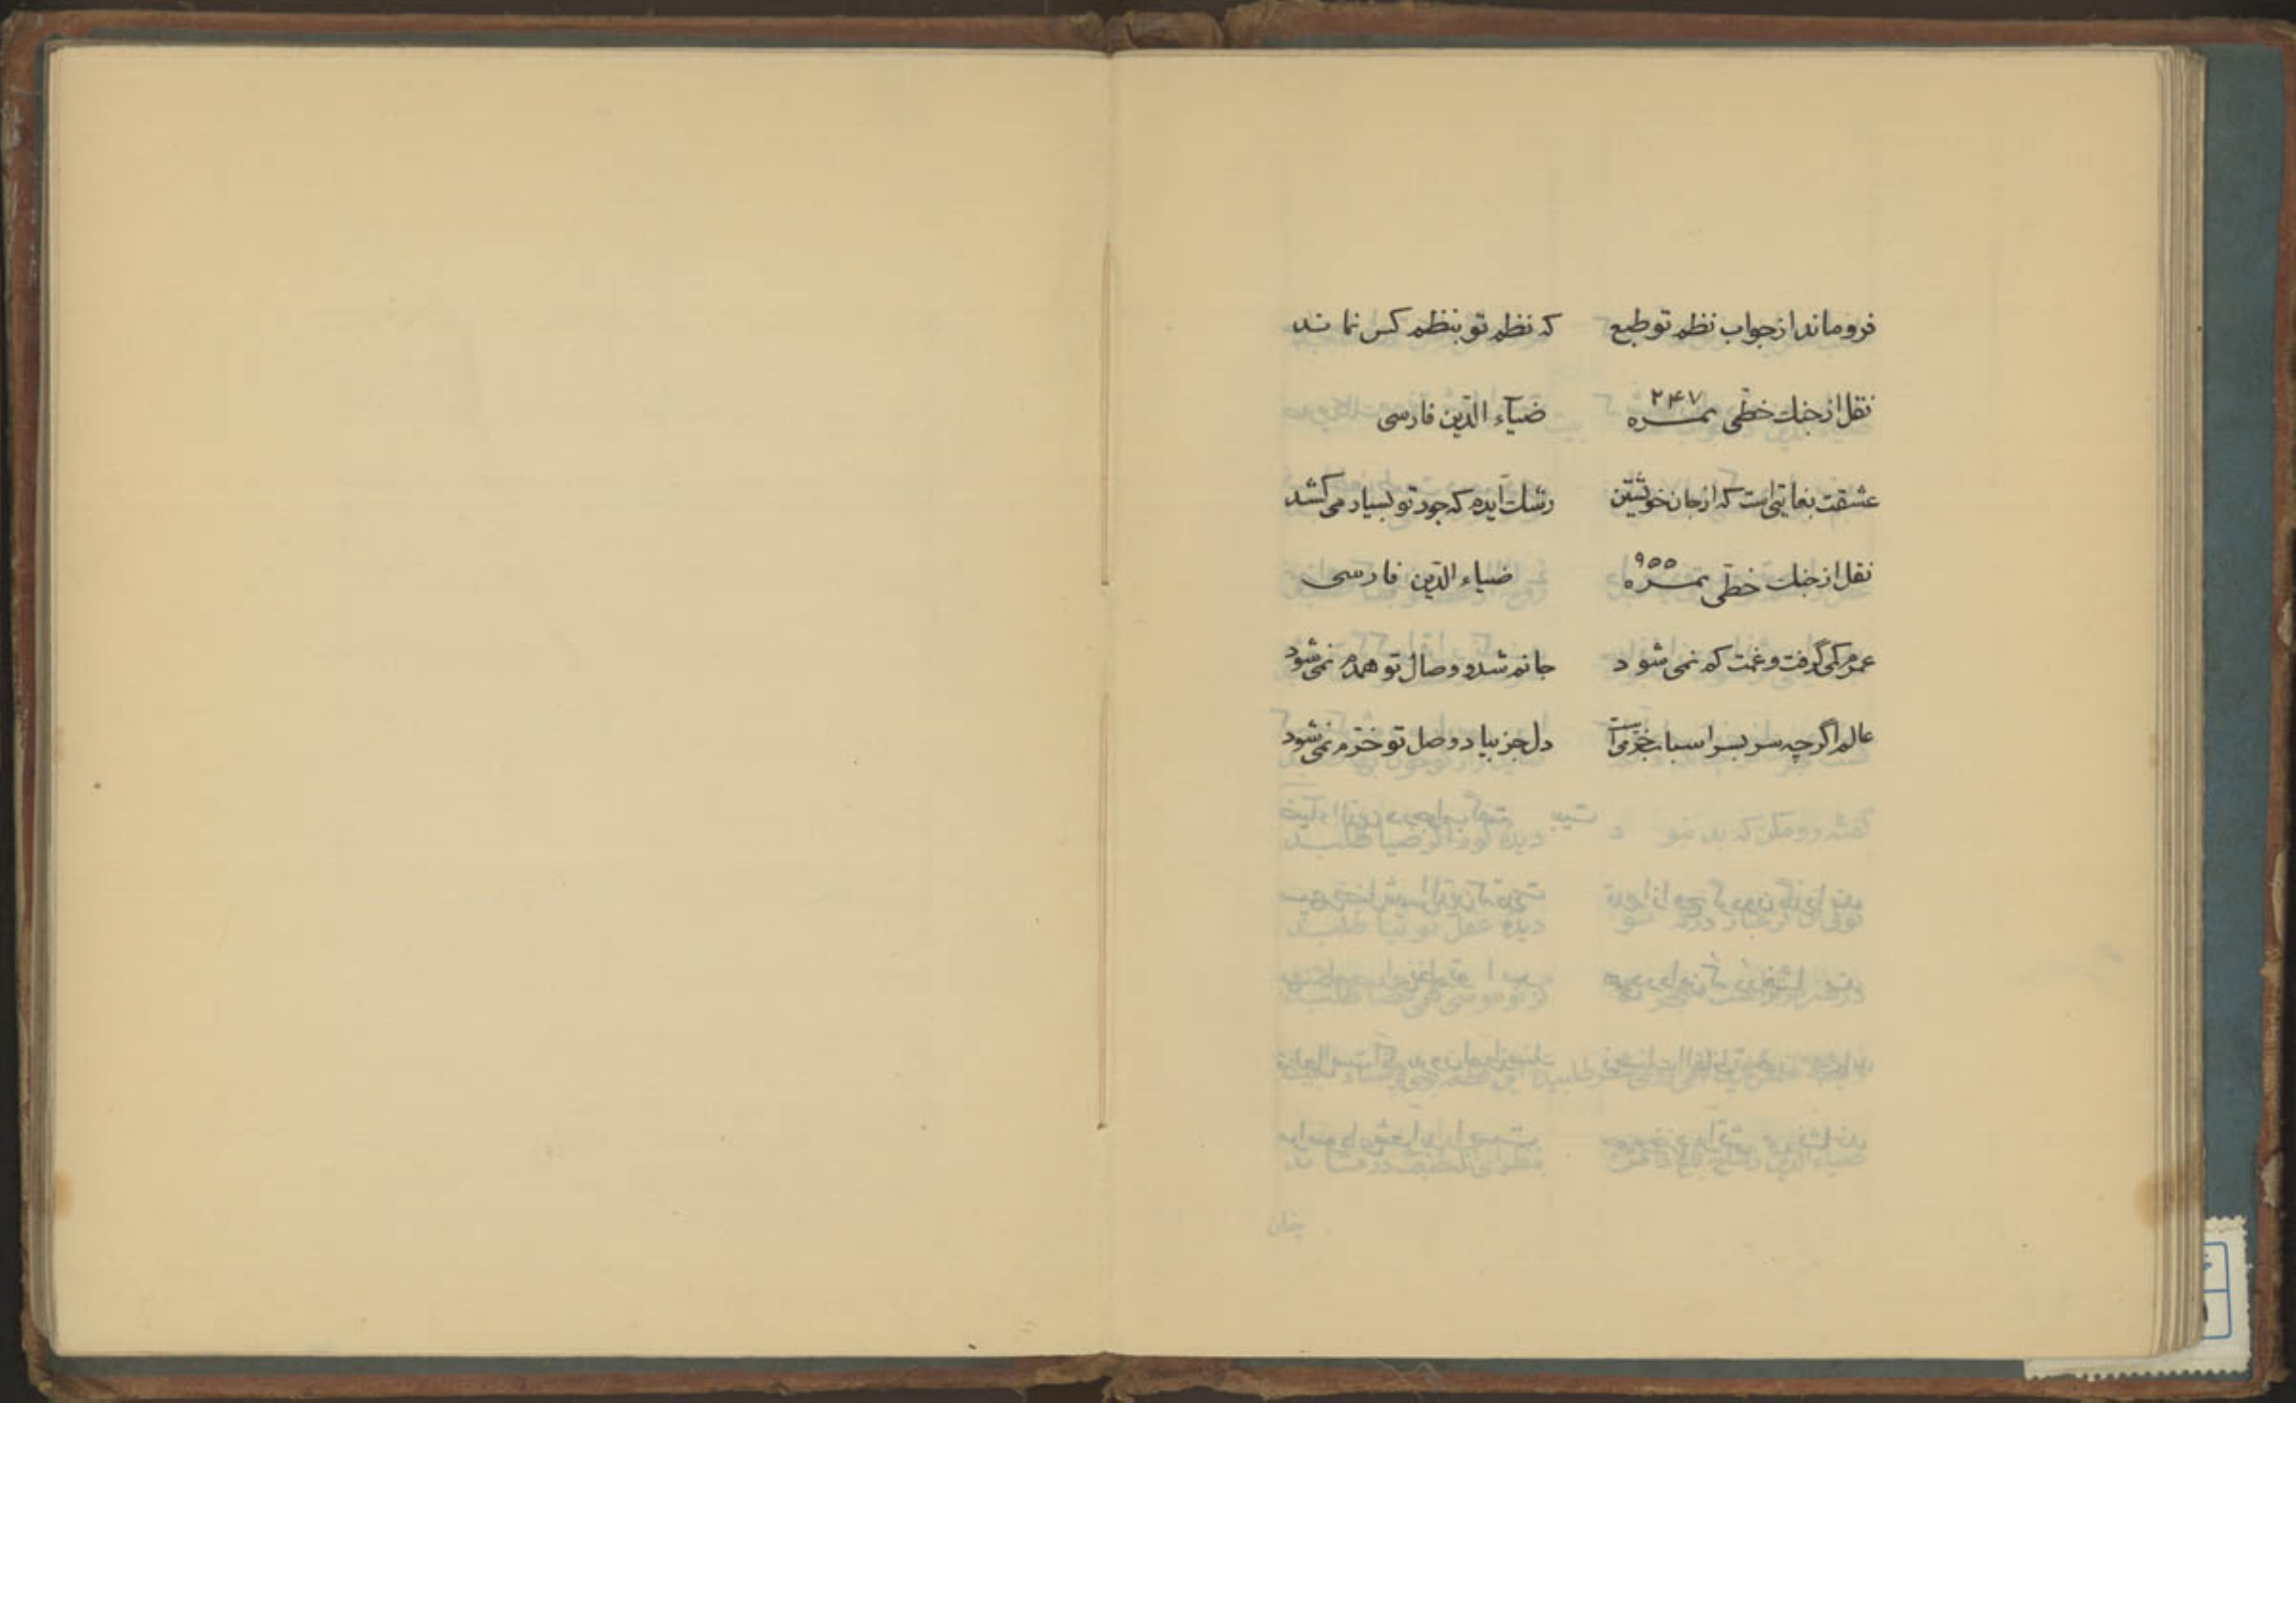 فروماند از جواب نظم تو طبع که نظم تو بنظم کس نماند
نقل از جنك خطّی نمره ۲۴۷ ضیآء الدّین فارسی
عشقت بغایتی است که از جان خویشتن رشك آیدم که جور تو بسیار می‌کشد
نقل از جنك خطّی نمره ۹۵۵ ضیاء الدّین فارسی
عمرم کمی گرفت و غمت کم نمی‌شود جانم شد و وصال تو همدم نمی‌شود
عالم اگرچه سر بسر اسباب خرّمی است دل جز بیاد وصل تو خرّم نمی‌شود